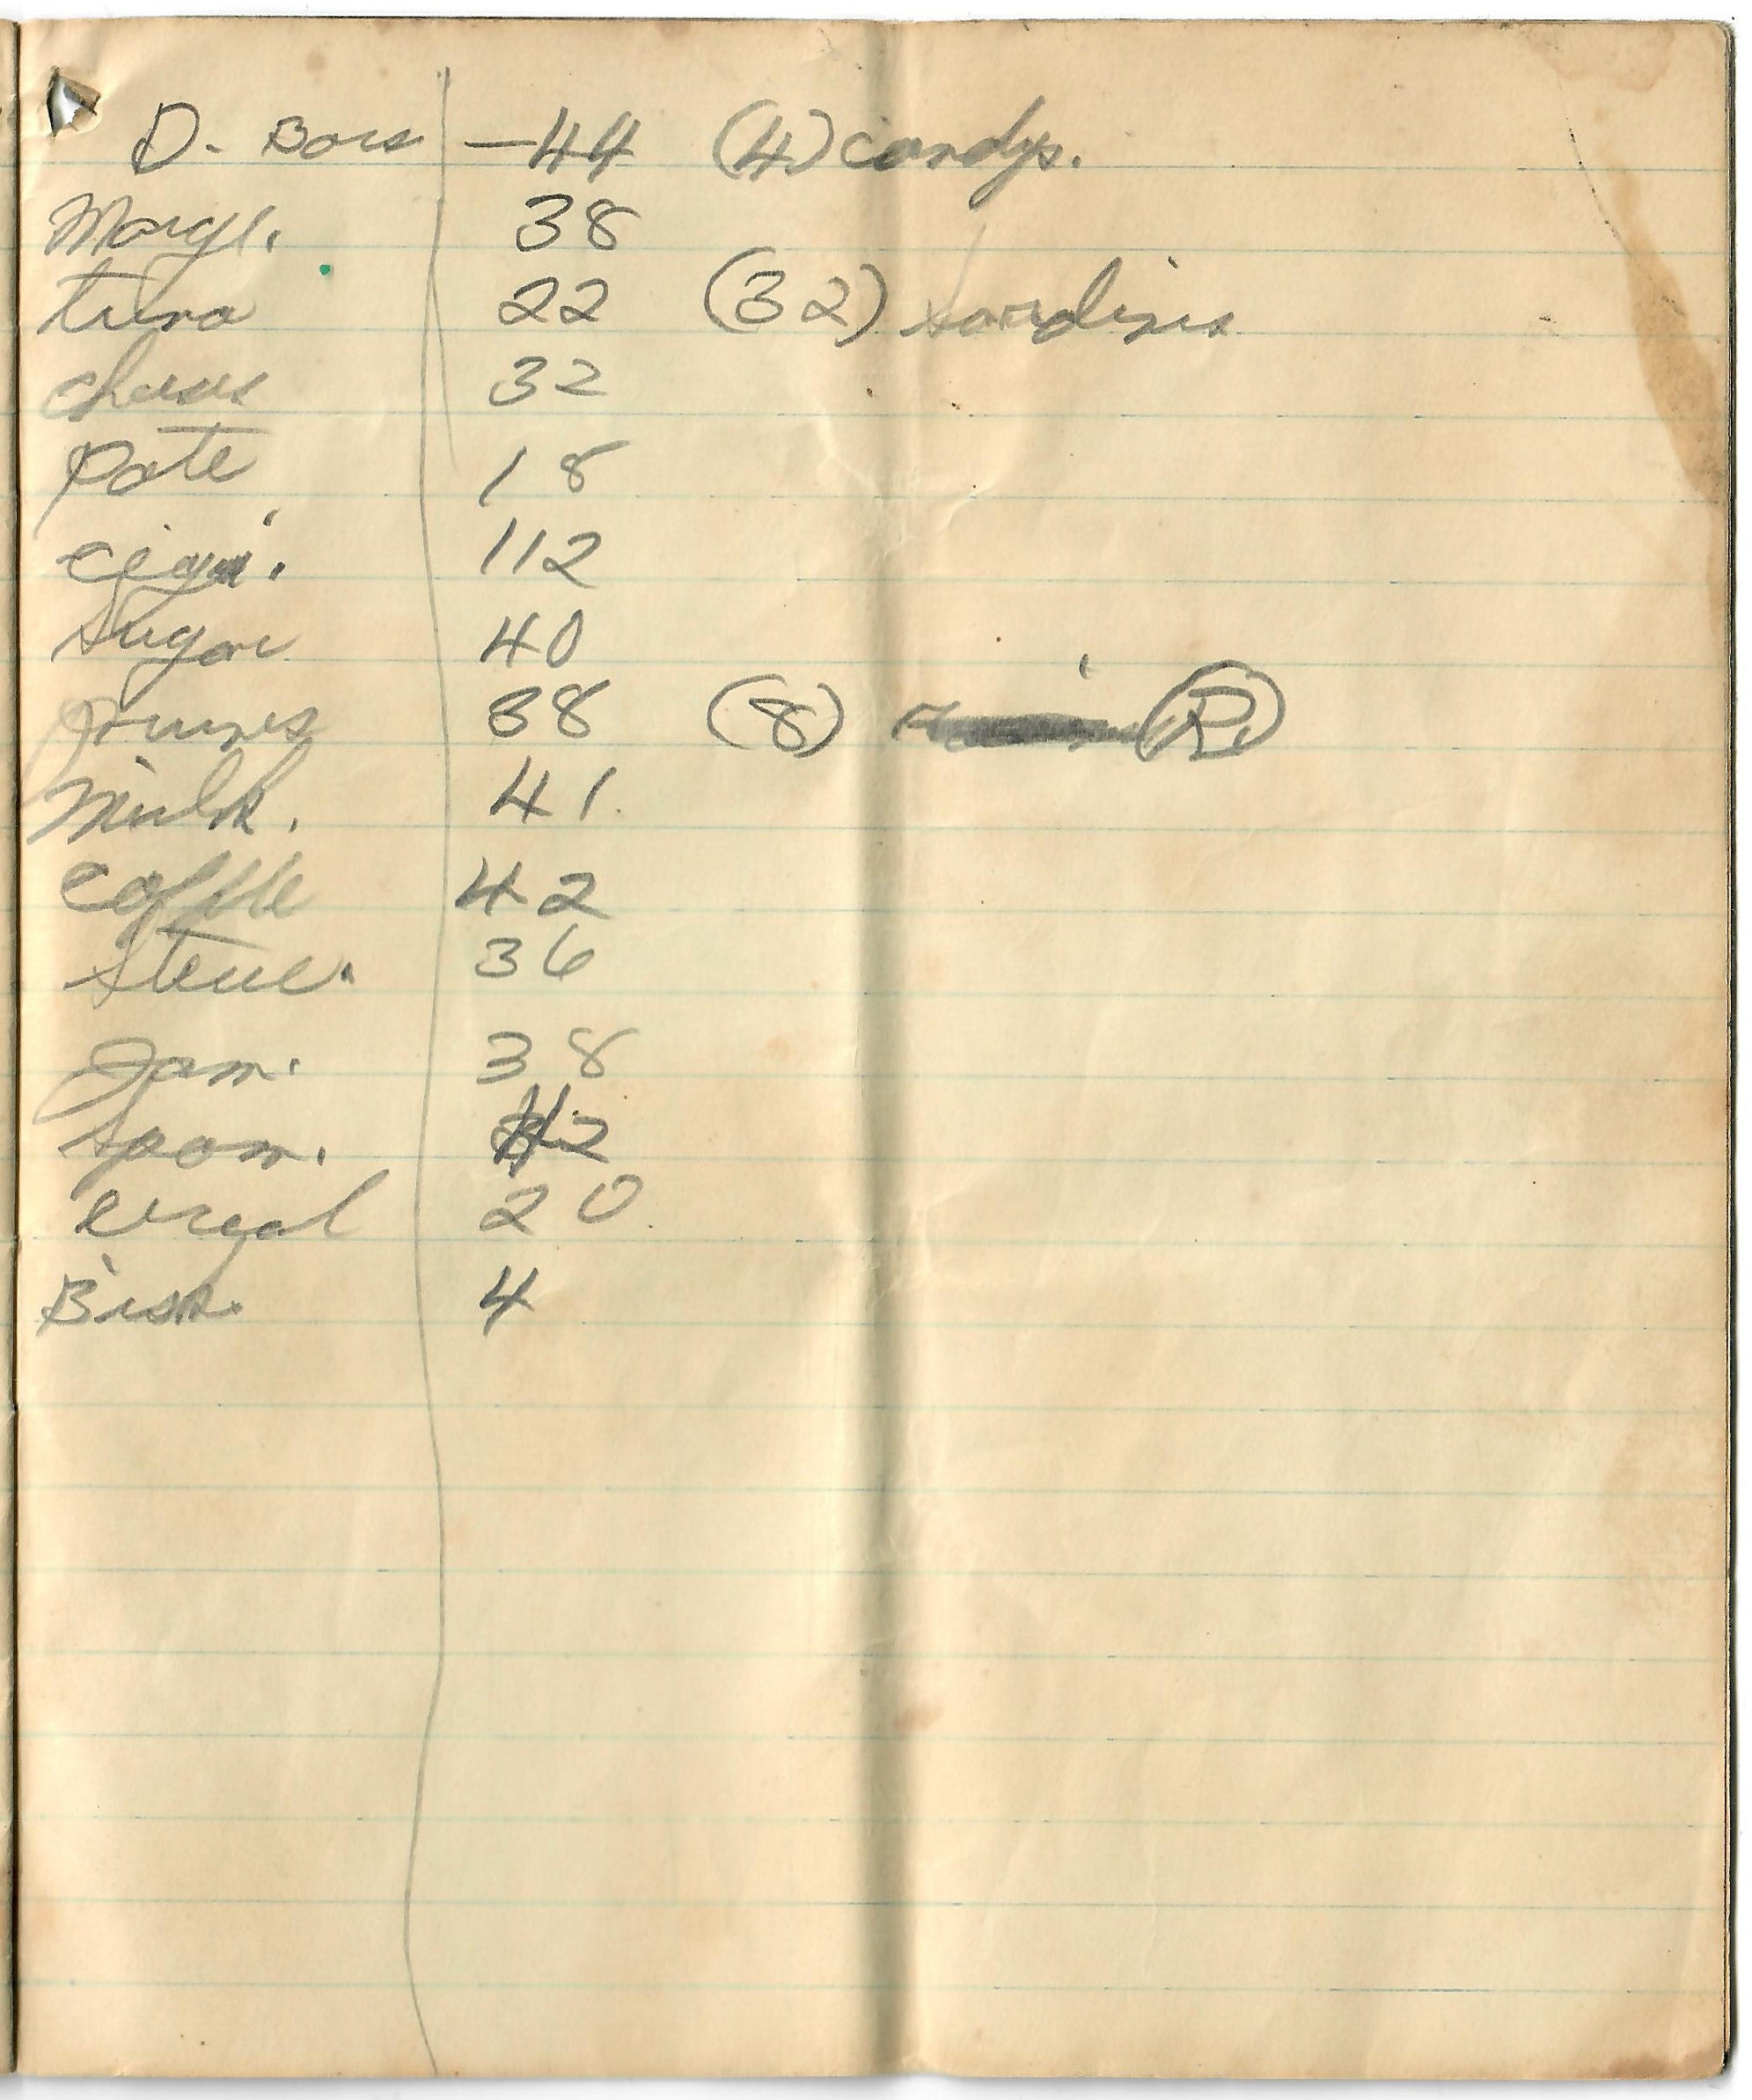 D. Bars - 44 (4) candys.
Margr. 38
tuna 22 (32) sardines
cheese 32
Pate 18
cigar. 112
Sugar 40
Prunes 38 (8) R.
Milk. 41
Coffee 42
Steue. 36
Jam. 38
Spam. 42
cereal 20
Bisk. 4